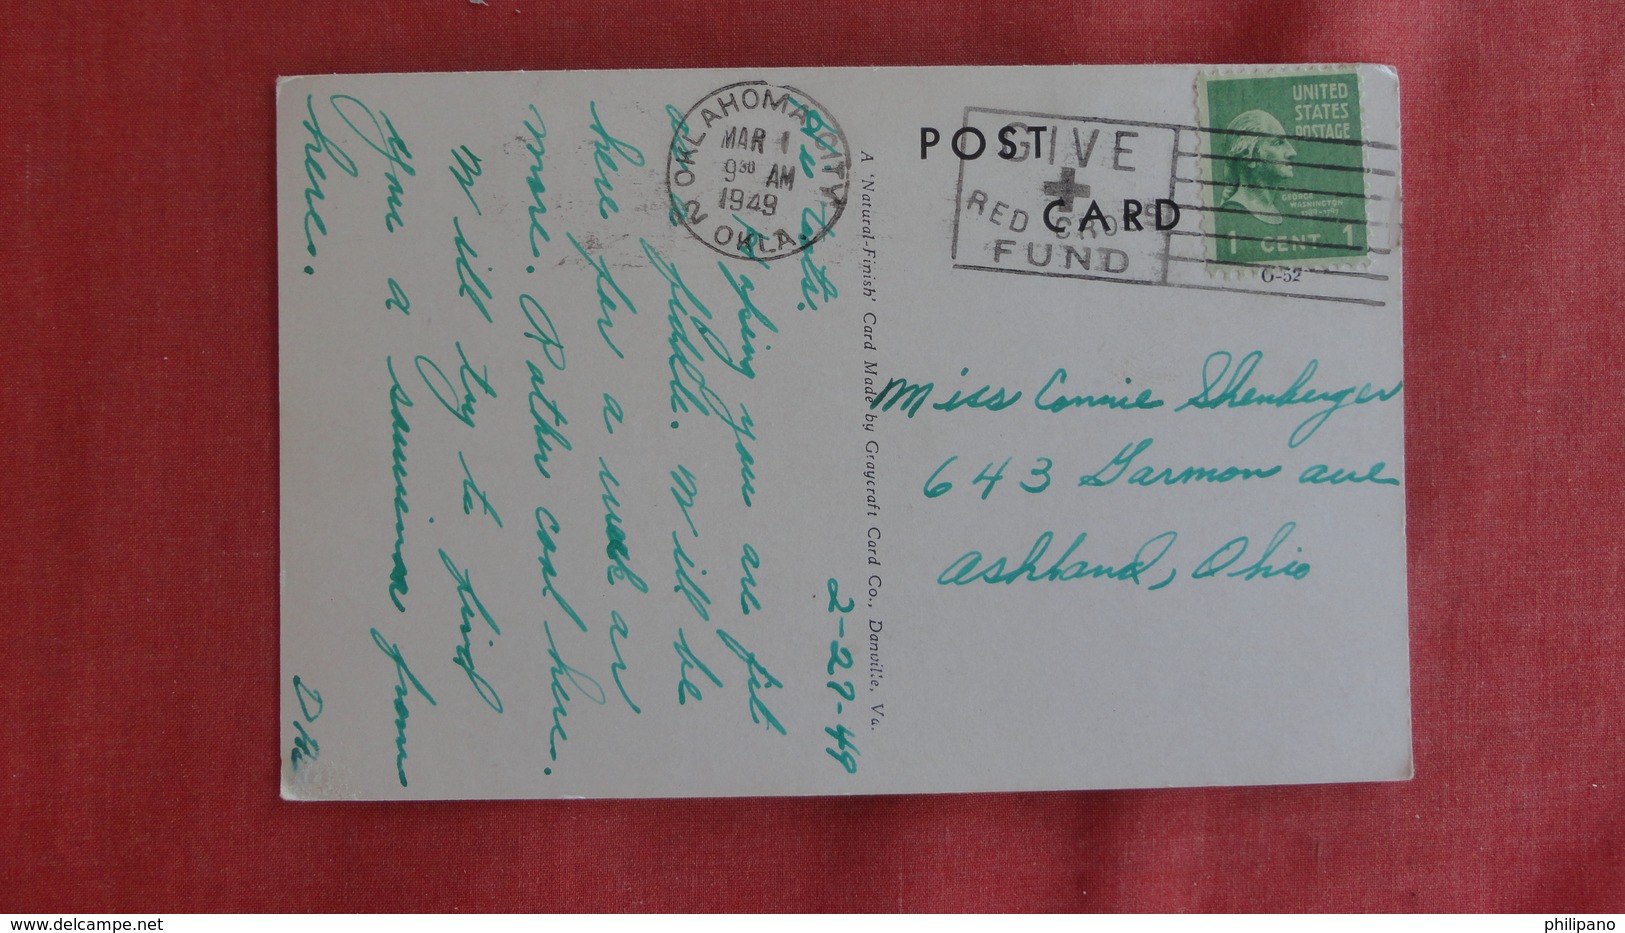 POST CARD
GIVE
RED CROSS
FUND
OKLAHOMA CITY 2
MAR 1
9 30 AM
1949
OKLA.
UNITED
STATES
POSTAGE
GEORGE
WASHINGTON
1789-1797
1 CENT 1
G-52
Miss Connie Shenberger
643 Garmon ave
Ashland, Ohio
A 'Natural-Finish' Card Made by Graycraft Card Co., Danville, Va.
2-27-49
Hi tots:
Hoping you are fit
as a fiddle. Will be
here for a week or
more. Rather cool here.
Will try to find
you a souvenir from
here.
delcampe.net
philipano